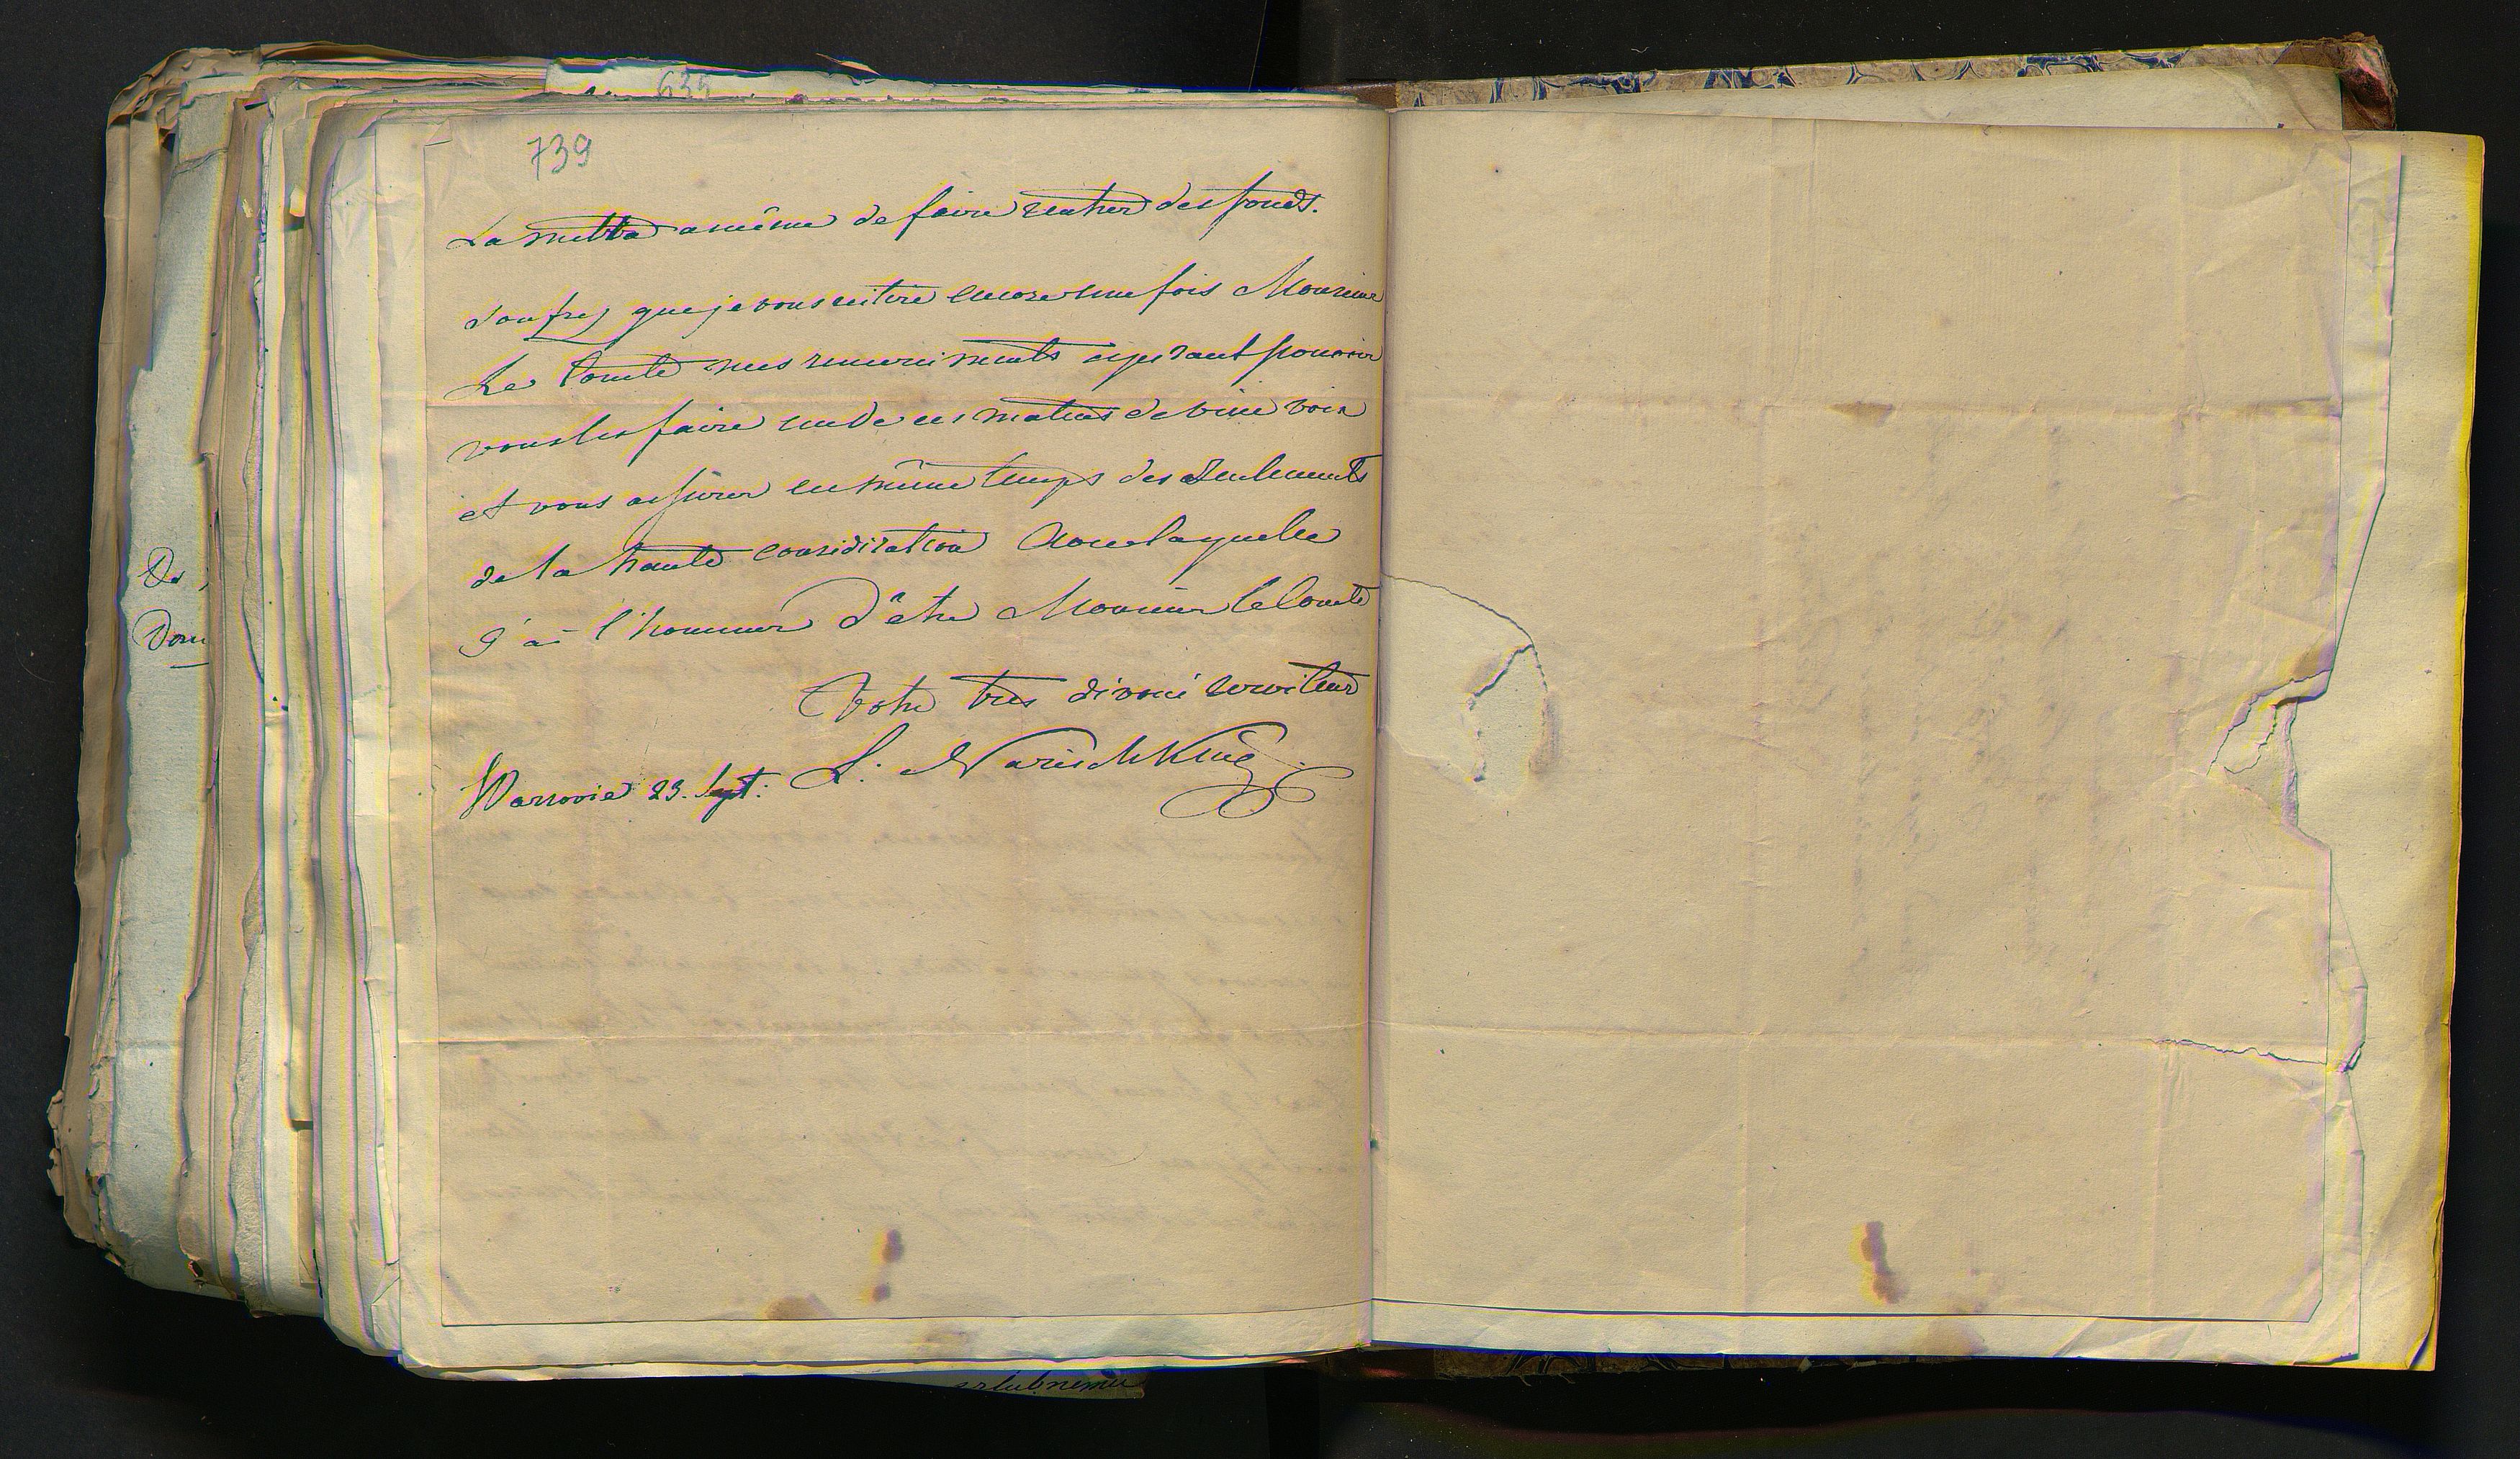 635
739
La mettra a même de faire rentrer des fonds.
Soufrez que je vous reitere encore une fois Monsieur
Le Comte mes remerciments esperant pouvoir
vous les faire un de ces matins de vive voix
et vous assurer en même temps des sentiments
de la haute consideration avec laquelle
J'ai l'honneur d'être Monsieur le Comte
Votre très dévoué serviteur
L: Narischkine
Varsovie 23. Sept:
De
Dom